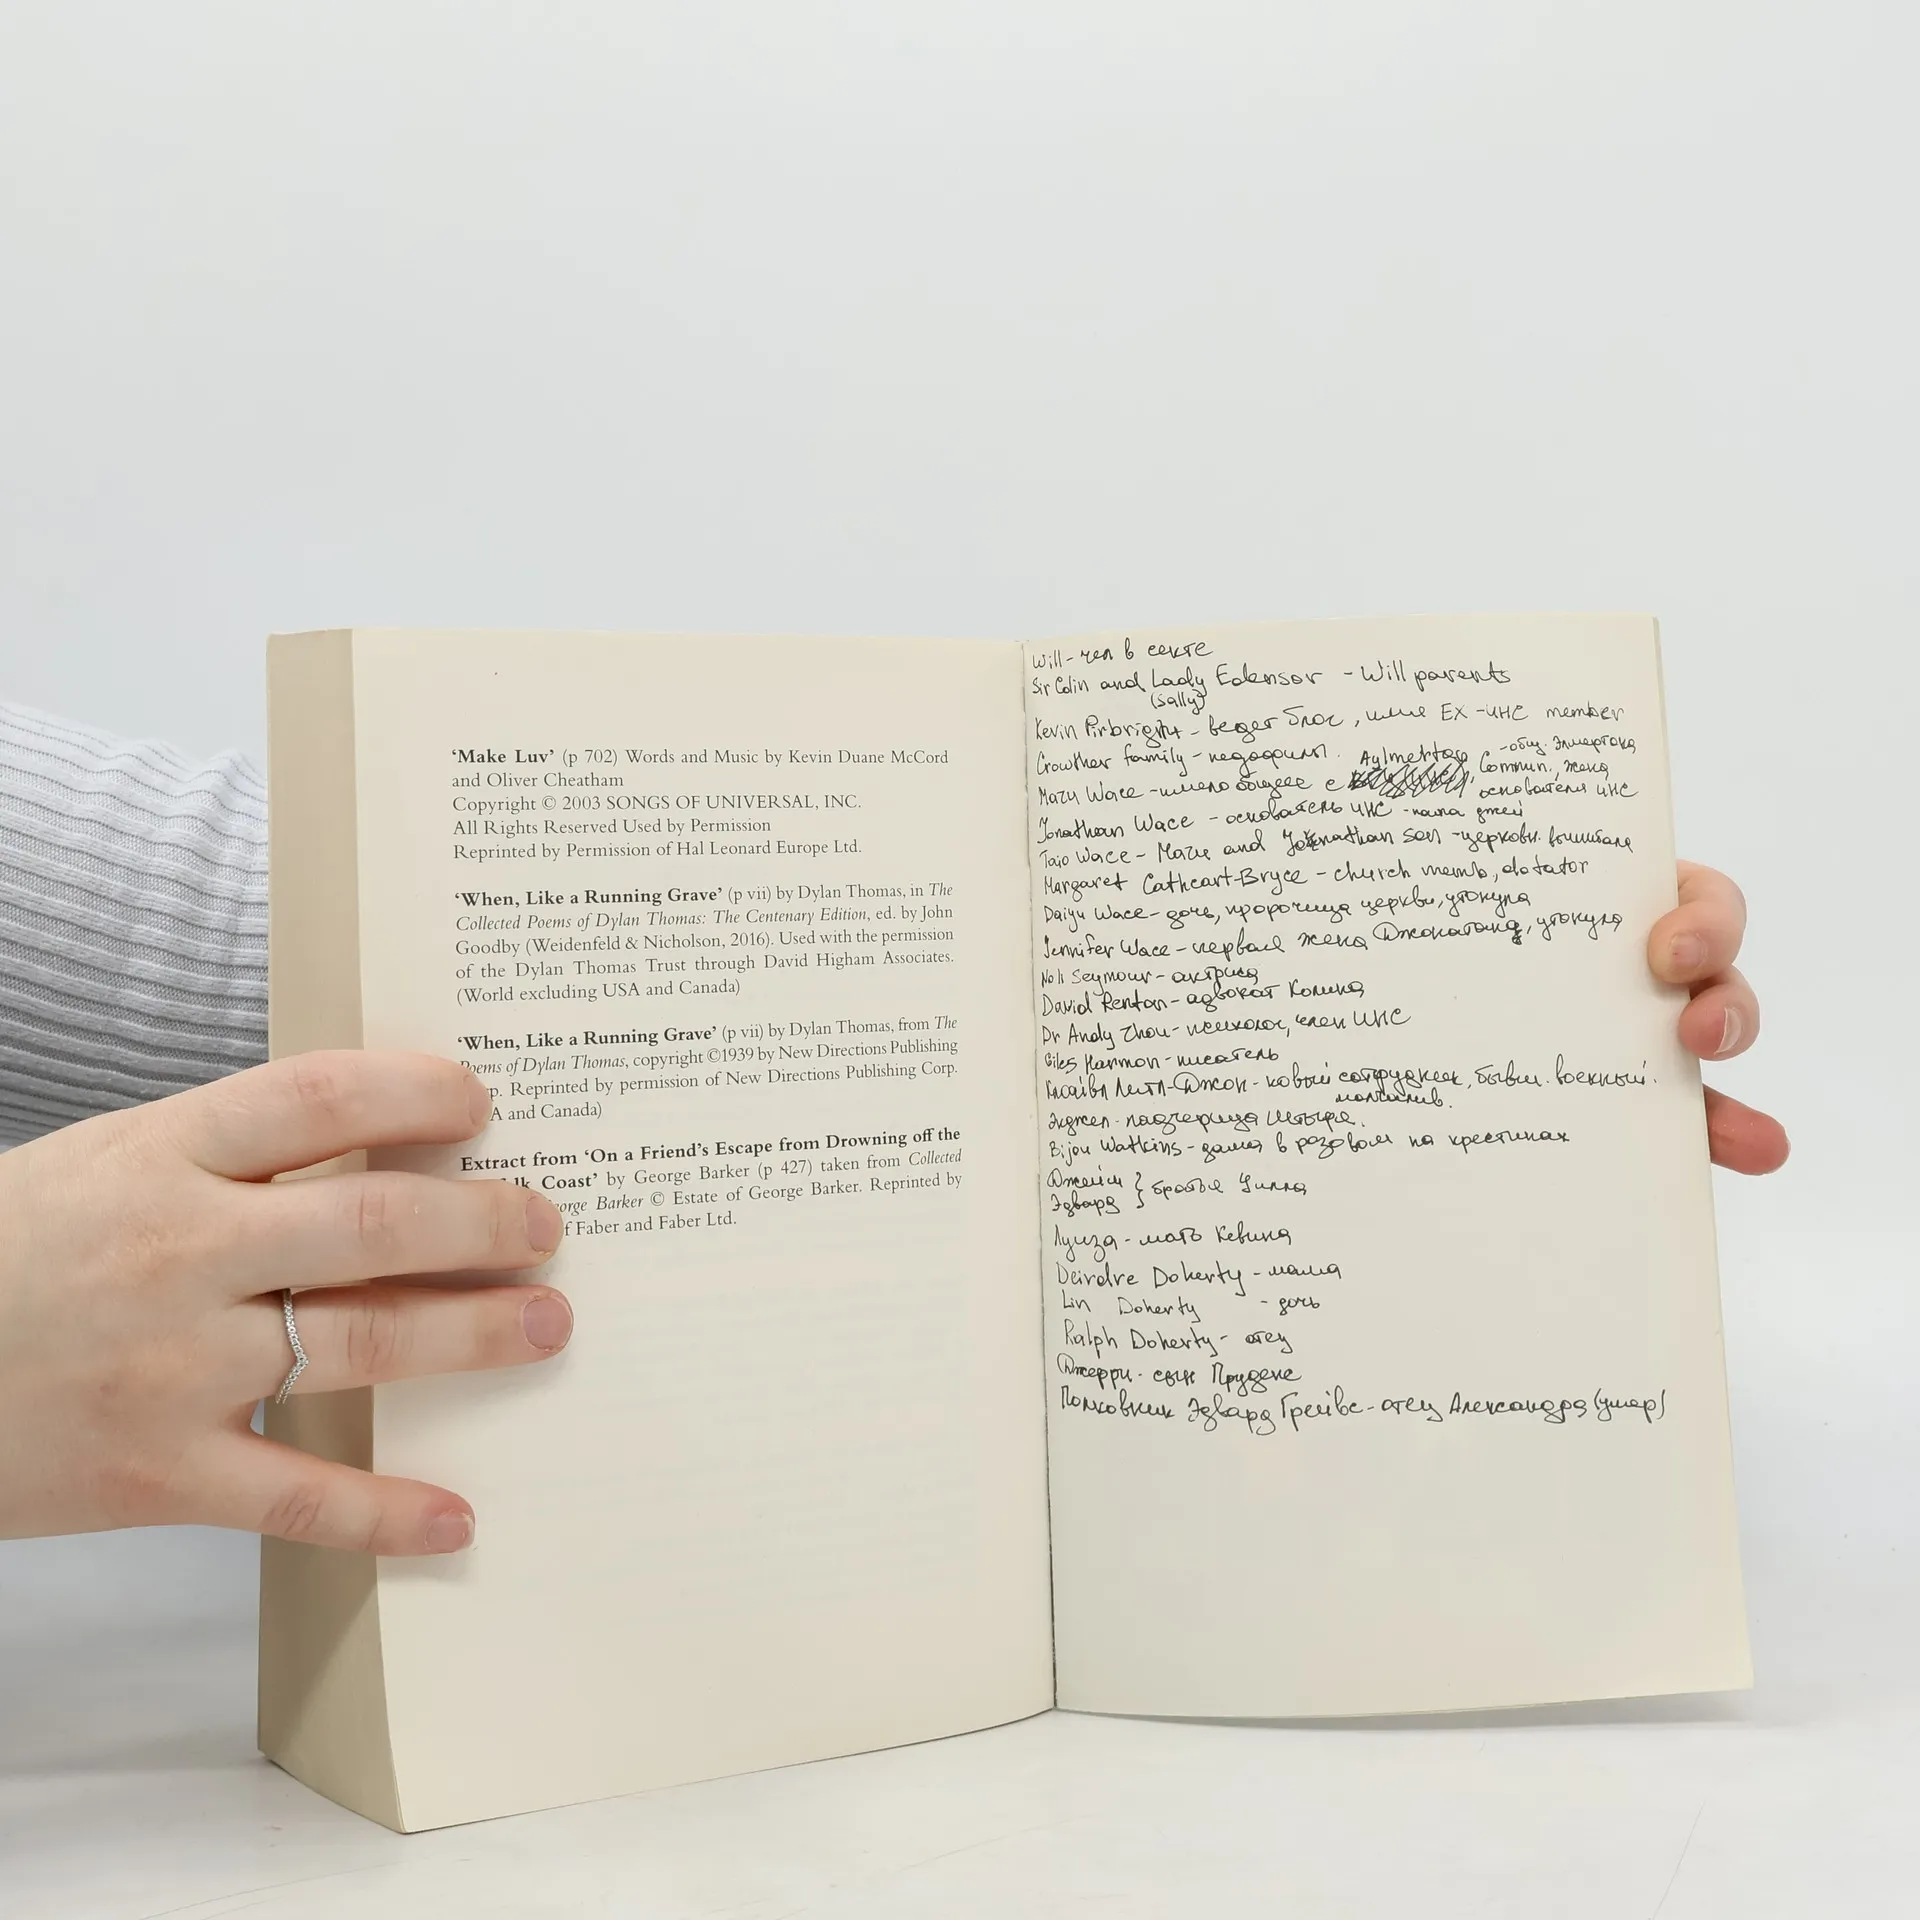 ‘Make Luv’ (p 702) Words and Music by Kevin Duane McCord
and Oliver Cheatham
Copyright © 2003 SONGS OF UNIVERSAL, INC.
All Rights Reserved Used by Permission
Reprinted by Permission of Hal Leonard Europe Ltd.
‘When, Like a Running Grave’ (p vii) by Dylan Thomas, in The
Collected Poems of Dylan Thomas: The Centenary Edition, ed. by John
Goodby (Weidenfeld & Nicholson, 2016). Used with the permission
of the Dylan Thomas Trust through David Higham Associates.
(World excluding USA and Canada)
‘When, Like a Running Grave’ (p vii) by Dylan Thomas, from The
Poems of Dylan Thomas, copyright ©1939 by New Directions Publishing
Reprinted by permission of New Directions Publishing Corp.
A and Canada)
Extract from ‘On a Friend’s Escape from Drowning off the
Coast’ by George Barker (p 427) taken from Collected
George Barker © Estate of George Barker. Reprinted by
Faber and Faber Ltd.
Will - чел в секте
Sir Colin and Lady Edensor - Will parents
(Sally)
Kevin Pirbright - ведет блог, EX-УНС member
Crowther family - педофилы. Aylmerton - общ. Элмертона
Mazu Wace - общее с Commun., жена
основателя УНС
Jonathan Wace - основатель УНС - папа джей
Taio Wace - Mazu and Jonathan son - церковн. вышибала
Margaret Cathcart-Bryce - church memb, dotator
Daiyu Wace - дочь, пророчица церкви, утонула
Jennifer Wace - первая жена Джонатана, утонула
Noli Seymour - актриса
David Renton - адвокат Колина
Dr Andy Zhou - психолог, член УНС
Giles Harmon - писатель
Клайв Литл-Джон - новый сотрудник, бывш. военный.
молчалив.
Эджел - падчерица Штыря.
Bijou Watkins - дама в розовом на крестинах
Джеймс } братья Уилла
Эдвард
Луиза - мать Кевина
Deirdre Doherty - мама
Lin Doherty - дочь
Ralph Doherty - отец
Джерри - сын Пруденс
Полковник Эдвард Грейвс - отец Александра (умер)